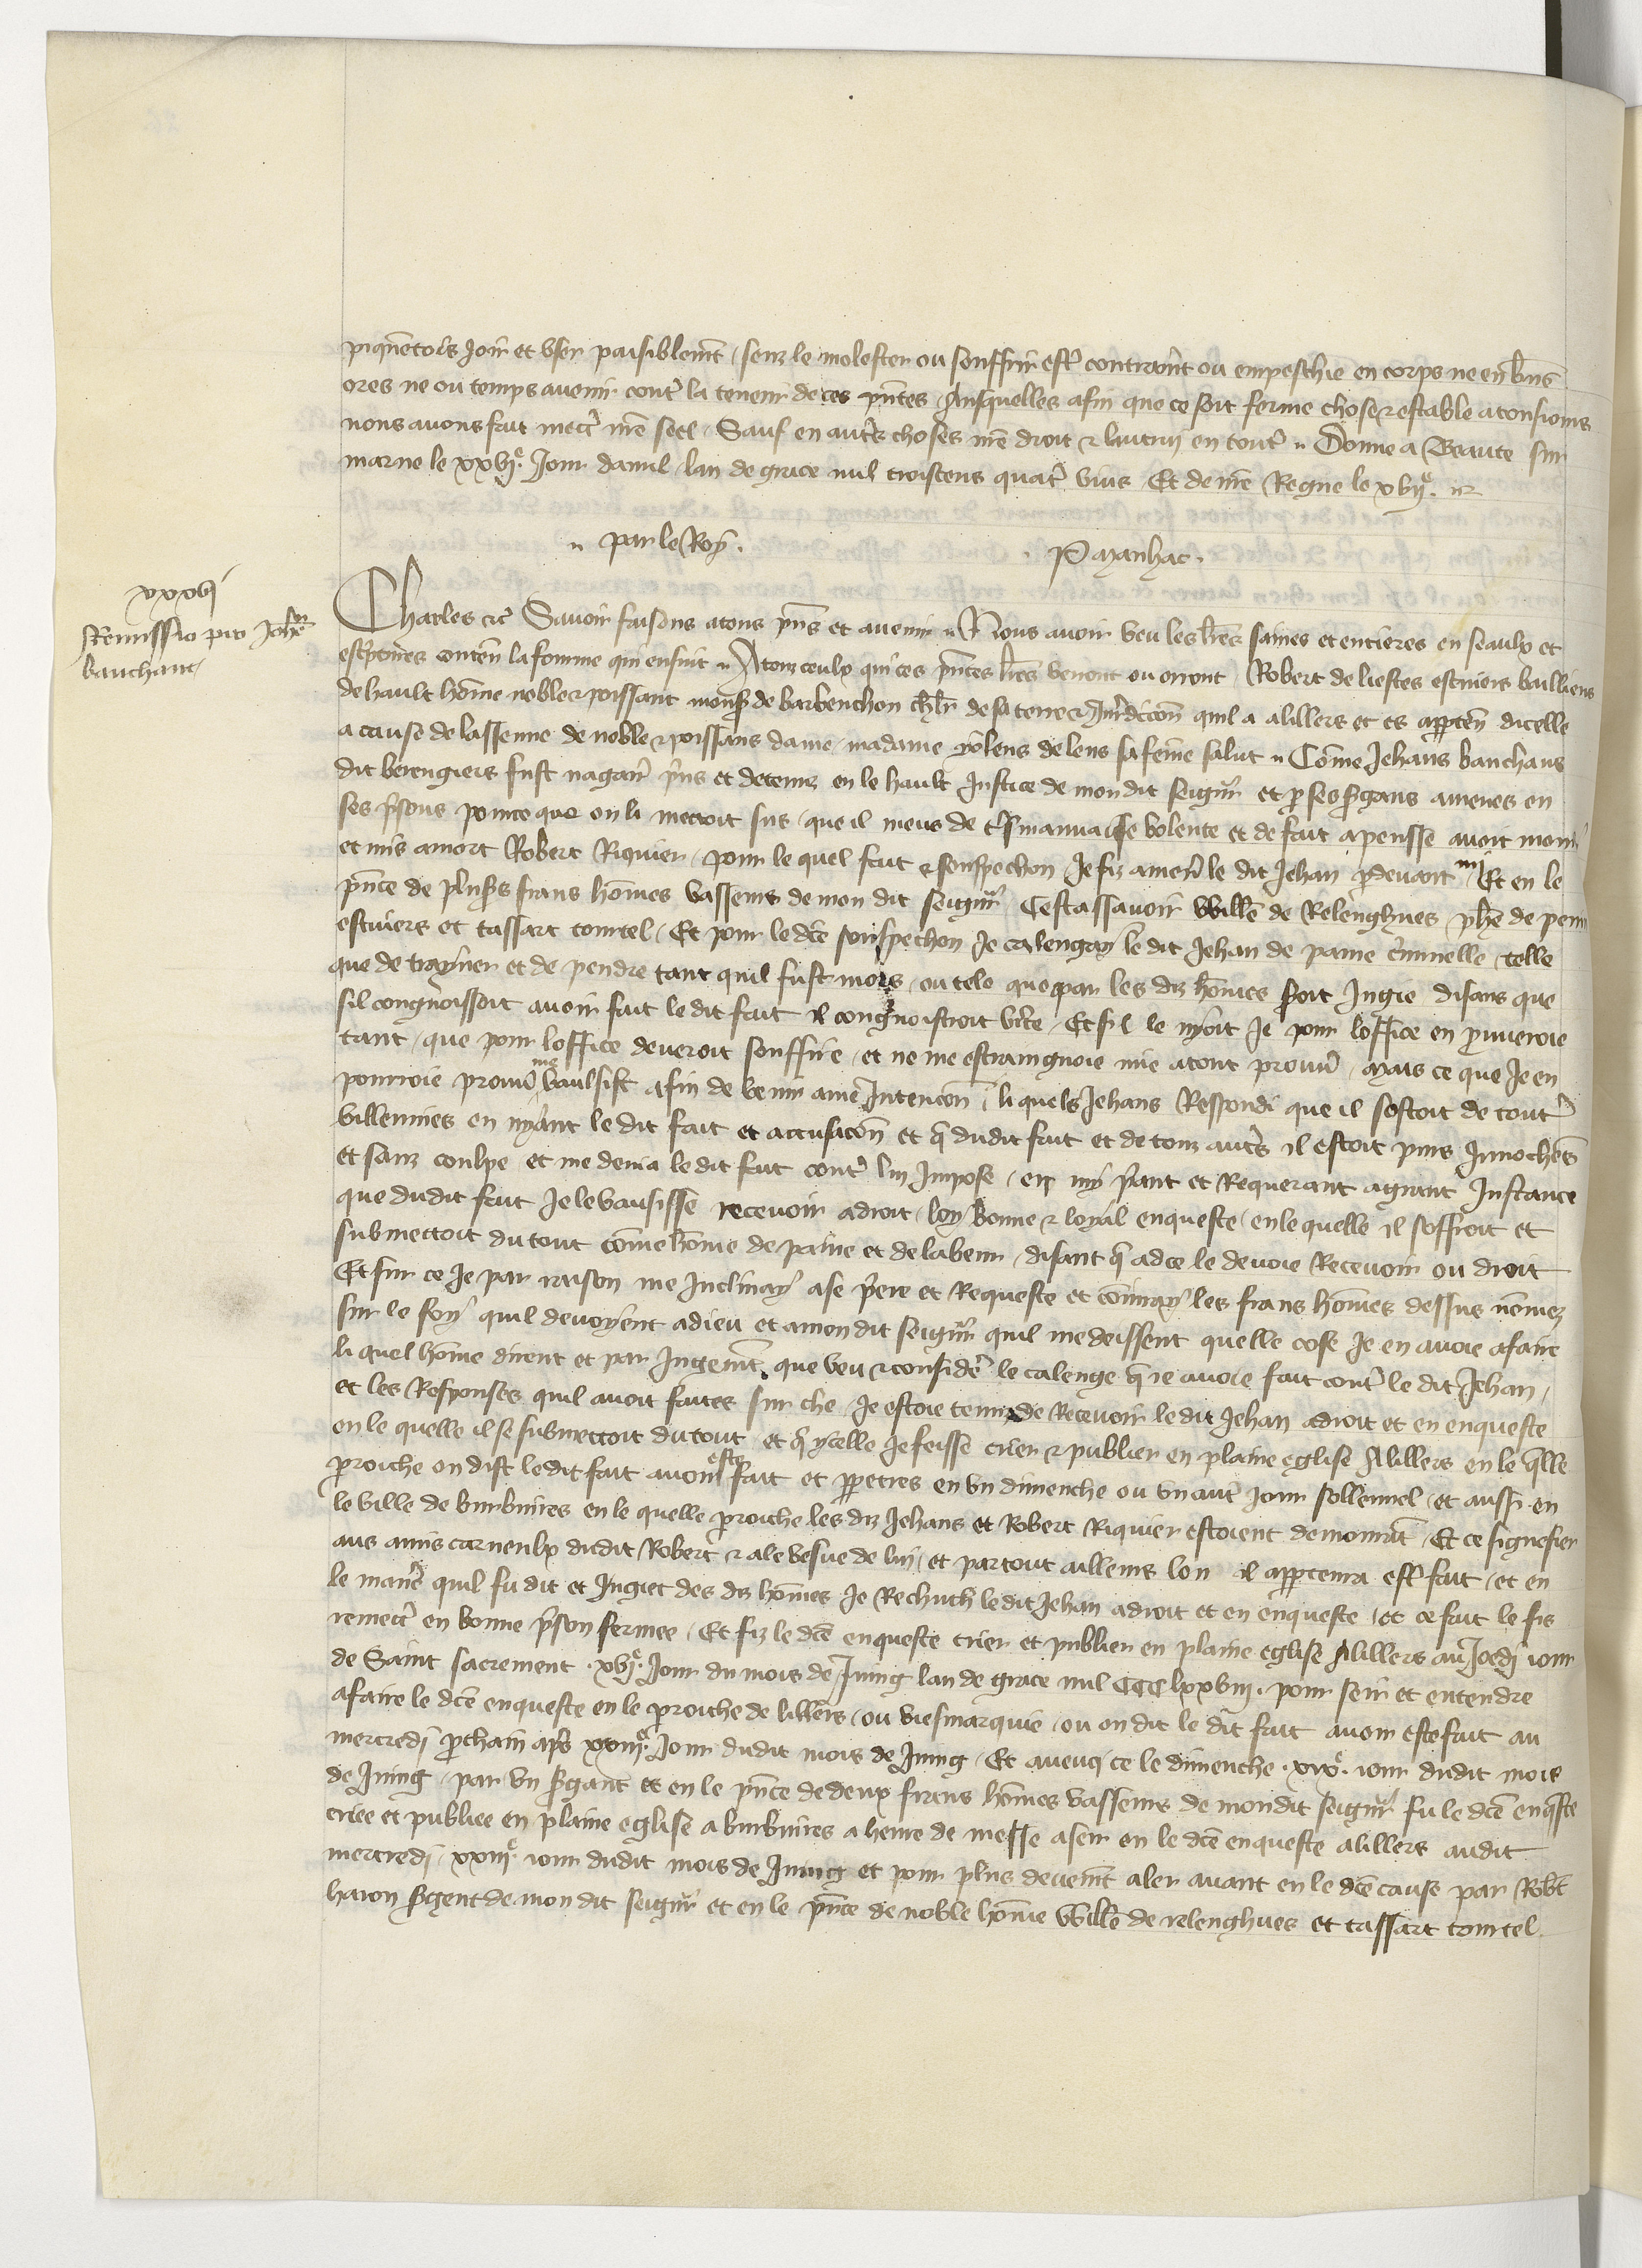 piquetots joir et user paisiblemt, senz le molester ou souffrir estre contraint ou empeschie en corps ne en biens
ores ne ou temps avenir contre la teneur de ces pntes Ausquelles afin que ce soit ferme chose & estable a tousiours
nous avons fait mettre nre seel, Sauf en autres choses nre droit & lautruy en toutes. Donne a Beaute sur
marne le xxvje. Jour davril lan de grace mil troiscens quatre vins Et de nre Regne le xvije.
par le Roy.
P. Manhac.
xxxvj
Remissio pro Johe
bauchant
Charles etc Savoir faisons a tous pns et avenir Nous avoir veu les lres saines et entieres en seaulx et
escriptures conten la fourme qui ensuit A touz ceulx qui ces pntes lres verront ou orront Robert de liestes escuiers bailliens
de hault home noble & poissant mons de barbenchon chlr de sa terre & Jurdicon quil a a lillers et es apparten dicelle
a cause de lassenne de noble & poissans dame madame yolens de lens sa feme salut Come Jehans bauchans
dit berengiers fust nagaire prins et detenuz en le hault Justice de mon dit seignr et p ses sgans amenes en
ses prisons pource que on li mettoit sus que il meus de sa mauvaise volente et de fait apensse avoit mourdri
et mis a mort Robert Riquier, pour le quel fait & souspechon Je fiz amener le dit Jehan pdevant mi Et en le
pnce de plusrs frans homes vasseurs de mon dit seignr Cestassavoir Wille de Relenghues
escuiers et tassart tourtel, Et pour ledce souspechon Je calengay le dit Jehan de paine criminelle, telle
que de trayner et de pendre tant quil fust mors, ou tele que par les diz homes seroit Jugie disans que
sil congnoissoit avoir fait le dit fait il congnoistroit vite, Et sil le nyoit Je pour loffice en prouveroie
tant, que pour loffice deveroit souffire, et ne me estraingnoie mie a tout prouver, Mais ce que Je en
pourroie prouver me vaulsist afin de venir a me Intencon, li quels Jehans Respondi que il sostoit de toutes
villennies en nyant le dit fait et accusacon et q dudit fait et de touz autres il estoit purs Innochens
et sanz coulpe et me denia le dit fait contre lui Impose, en my priant et Requerant a grant Instance
que dudit fait Je le vausisse recevoir a droit, loy bonne & loyal enqueste, en le quelle il soffroit et
submettoit du tout come home de paine et de labeur, disant q adce le devoie Recevoir ou droit
Et sur ce Je par raison me Inclinay a se priere et Requeste et conjuray les frans homes dessus nomez
sur le foy quil devoyent a dieu et a mon dit seignr quil me deissent quelle cose Je en avoie a faire
li quel home dirent et par Jugemt que veu & considere le calenge q ie avoie fait contre le dit Jehan,
et les Responses quil avoit faites sur che Je estoie tenuz de Recevoir ledit Jehan a droit et en enqueste
en le quelle il se submettoit du tout et q ycelle Je feisse crier & publier en plaine eglise A lillers en le qlle
proiche on dist ledit fait avoir este fait et ppetres en un dimenche ou un autre jour sollennel, et aussi en
le ville de burbures en le quelle proiche les diz Jehans et Robert Riquier estoient demourant, Et ce signefier
aus amis carneulx dudit Robert & a le vesve de lui, et partout ailleurs lou il appartenra estre fait, et en
le maniere quil fu dit et Jugiet des diz homes Je Rechuch ledit Jehan a droit et en enqueste, et ce fait le fis
remettre en bonne prison fermee, Et fiz le dce enqueste crier et publier en plaine eglise A lillers au Joedj iour
de Saint sacrement .xvje. Jour du mois de Juing lan de grace mil CCC lxxviij. pour seir et entendre
a faire le dce enqueste en le proiche de lillers, ou viesmarquie, ou on dit le dit fait avoir este fait au
mercredj prochain aps xxiije. Jour dudit mois de Juing, Et aveuq ce le dimenche .xixe. iour dudit mois
de Juing, par un sgant et en le pnce de deux frens homes vasseurs de mondit seignr fu le dce enqste
criee et publiee en plaine eglise a burbures a heure de messe a seir en le dce enqueste a lillers audit
mercredj xxiije. iour dudit mois de Juing et pour plus deuemt aler avant en le dce cause par Robt
haron sgent de mon dit seignr et en le pnce de noble home Wille de relenghues et tassart tourtel.